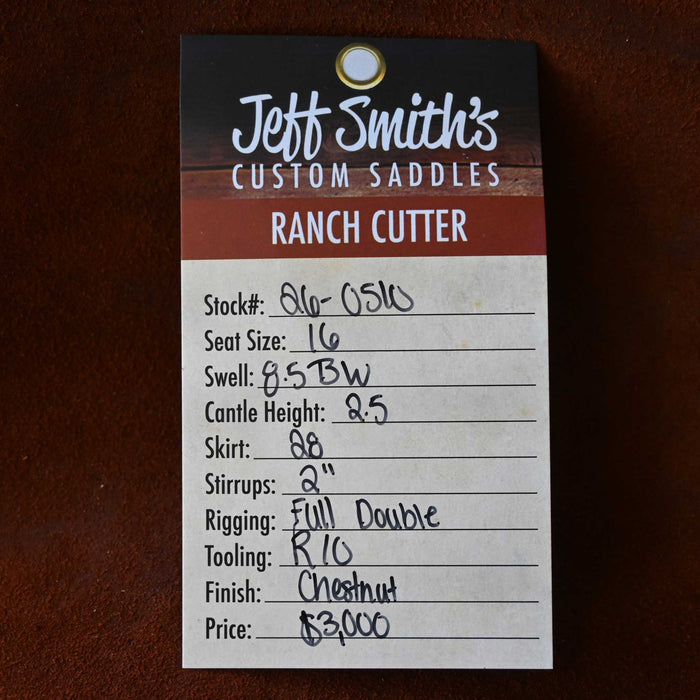 Jeff Smith's
CUSTOM SADDLES
RANCH CUTTER
Stock#: 26-05W
Seat Size: 16
Swell: 8.5 BW
Cantle Height: 2.5
Skirt: 28
Stirrups: 2"
Rigging: Full Double
Tooling: R10
Finish: Chestnut
Price: $3,000